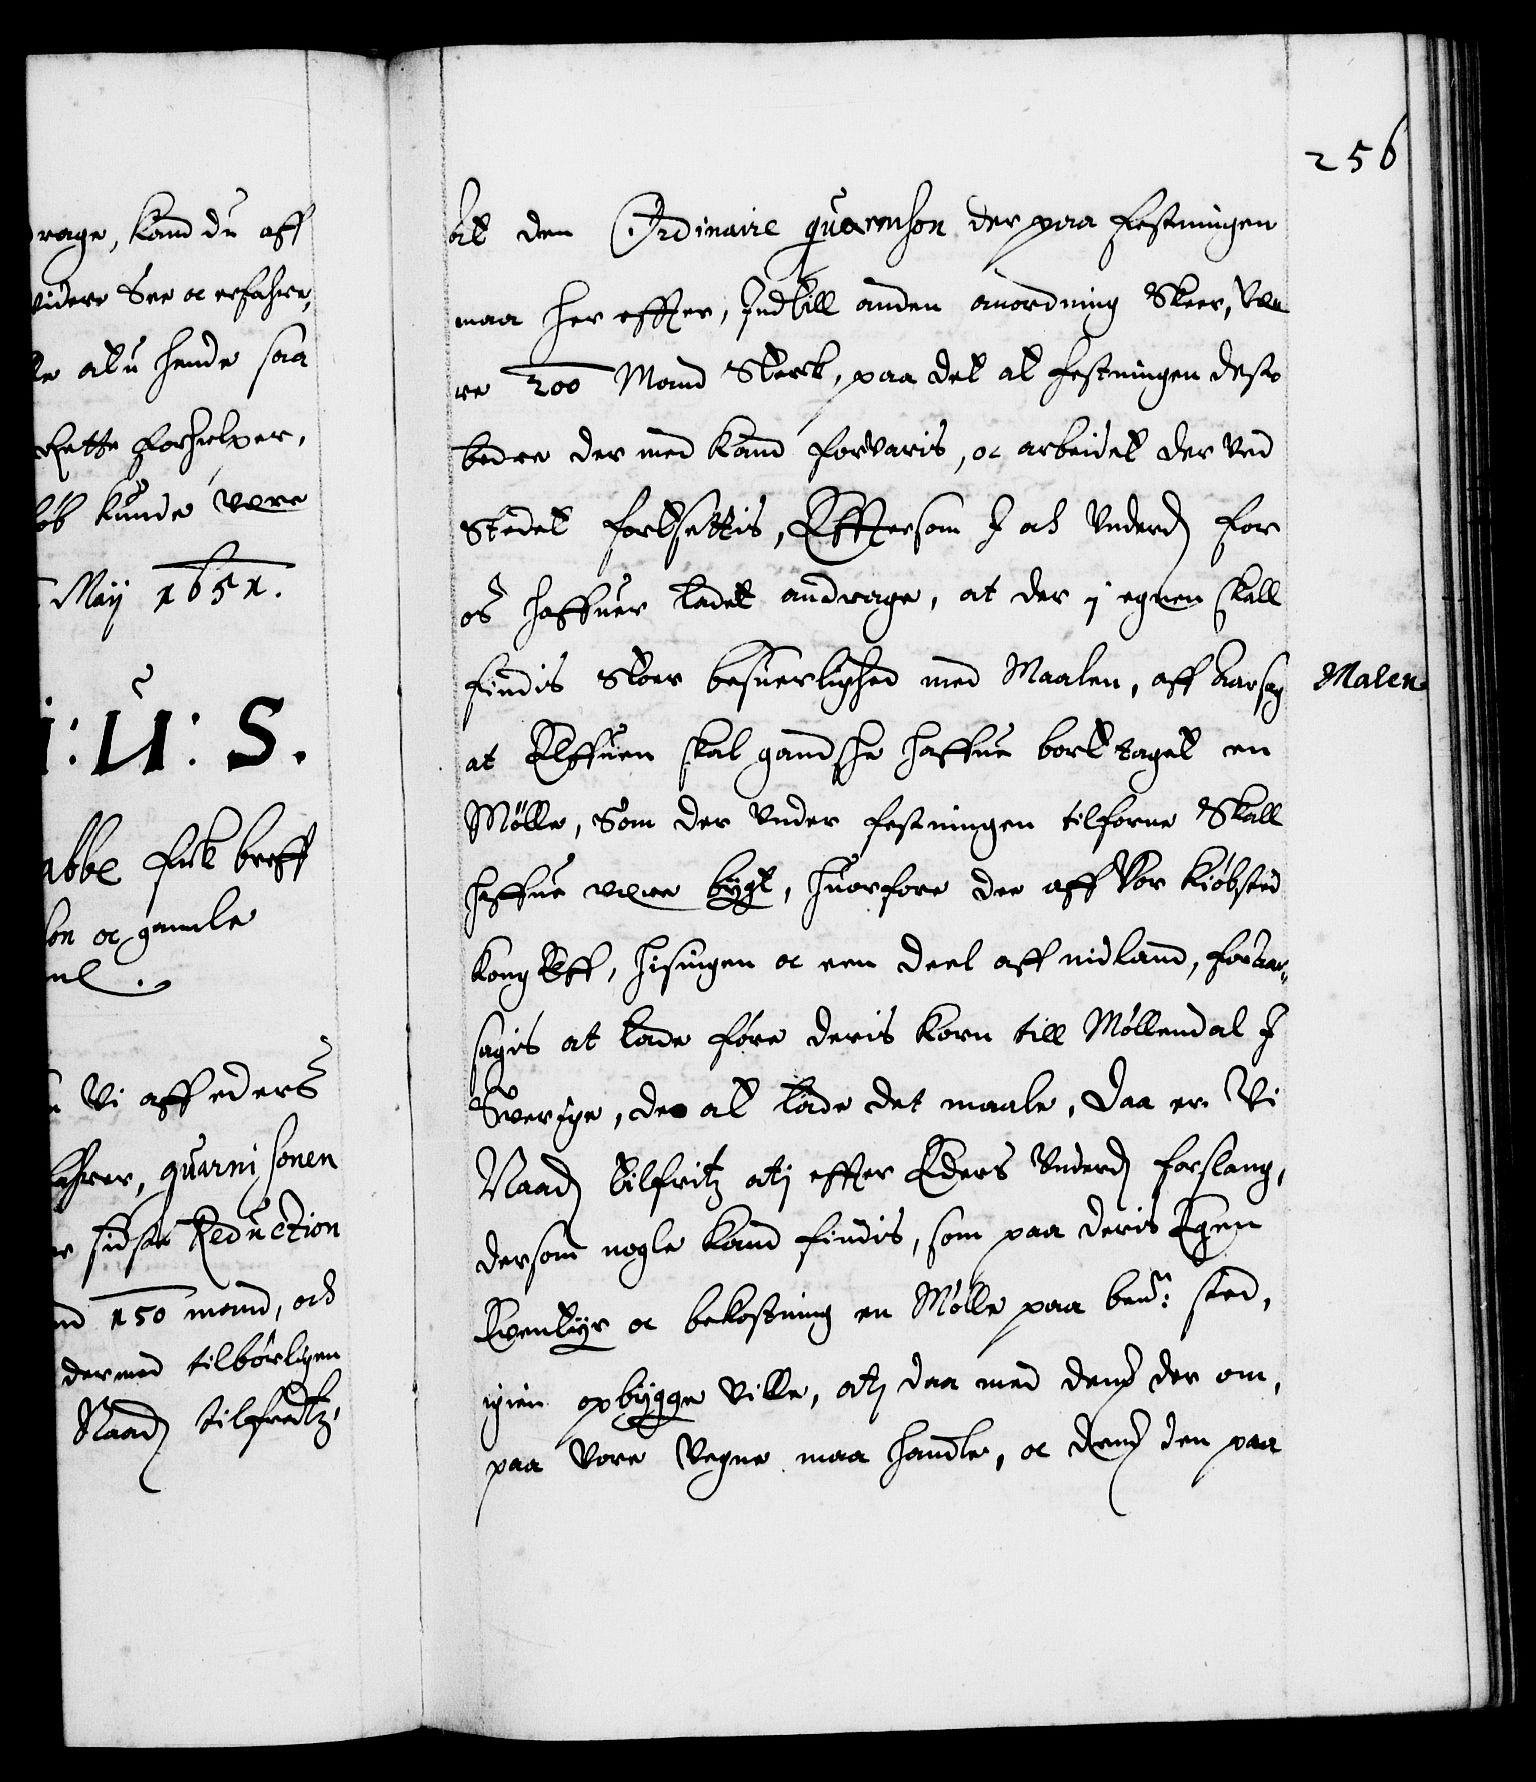 rage, kand du aff
videre See oc erfahre,
le atu hende saa
Rette forhielper,
kunde være
Maij 1651.
: U : S.
abbe fick breff
son oc gamle
Vi aff eders
quarnisonen
sidste Reduction
150 mand, och
dermed tilbørligen
Naad tilfredtz,
256
at den Ordinaire guarnison der paa festningen
maa her effter, Indtill anden anordning Skeer, Væ
re 200 Mand Sterck, paa det at festningen dess
bedre der med kand forvaris, oc arbeidet der ved
Stedet fortsettis, Effersom I och Underd for
os haffuer ladet andrage, at der i egnen skall
findis Stoer besuerlighed med Maalen, aff Aarsag
Malen
at Elffuen skal gandske haffue bort taget en
Mølle, Som der under festningen tilforne Skall
haffue være bygt, huorfore de aff Vor kiøbsted
Kong Elff, hisingen oc een deel aff indland, foraar-
sagis at lade føre deris korn till Møllendal I
Sverige, der at lade det maale, Daa er Vi
Naad tilfritz ati effter Eders Underd forslaug,
dersom nogle kand findis, som paa deris Egen
Eventyr oc bekostning en Mølle paa bem: sted,
igien opbygge ville, ati daa med dem der om,
paa Vore Vegne maa handle, oc dem den paa